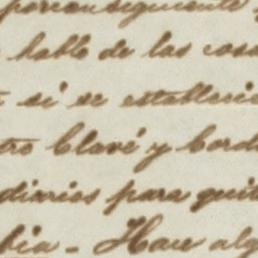 porconsiguiente
hablo de las cosa
si se establecie
tro Clavé y Cord
diarios para quit
bia - Hace alg